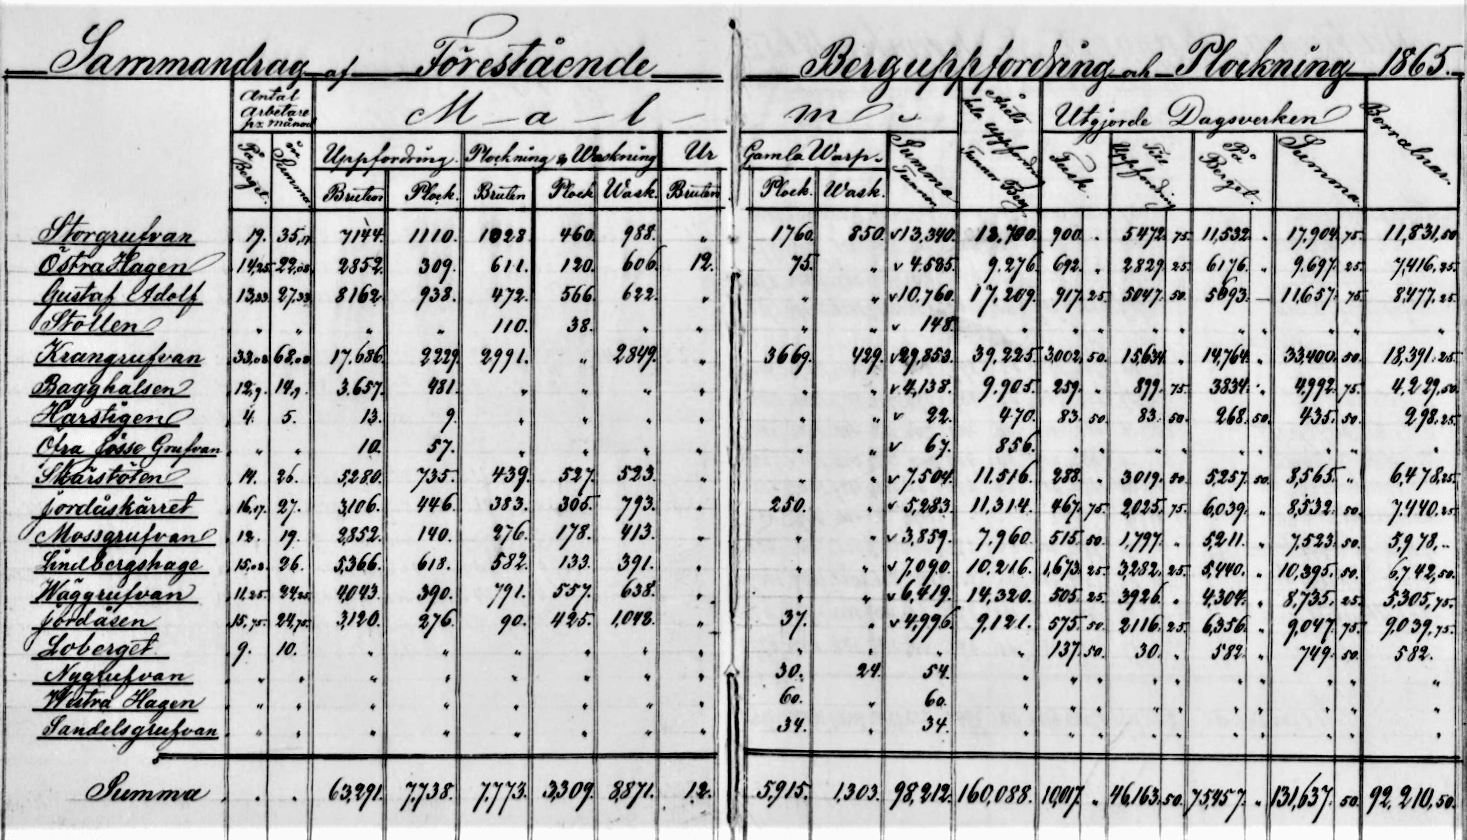 Sammandrag af Förestående Berguppfordring och Plockning 1865.
Antal Arbetare pr månad M - a - l - m Årets hela uppfordring Tunnor Berg Utgjorde Dagsverken Borralnar.
På Berget. in Summa Uppfordring. Plockning & Waskning Ur Gamla Warp. Summa Tunnor Fast. Till Uppfordring På Berget. Summa.
Bruten Plock. Bruten Plock Wask. Bruten Plock. Wask.
Storgrufvan 19. 35,17 7144. 1110. 1028. 460. 988. " 1760. 850. 13,340. 13,700. 900. " 5472. 75. 11,532. " 17,904. 75. 11,831,50
Östra Hagen 14,25 22,08 2852. 309. 611. 120. 606. 12. 75. " 4.585. 9,276. 692. " 2829. 25. 6176. " 9.697. 25. 7,416,25
Gustaf Adolf 13,33 27,33 8162. 938. 472. 566. 622. " " " 10,760. 17,209. 917. 25. 5047. 50. 5693. — 11,657. 75. 8,477,25
Stollen " " " " 110. 38. " " " " 148. " " " " " "
Krangrufvan 33,08 68,08 17,686. 2229. 2991. " 2849. " 3669. 429. 29,853. 39,225. 3,002. 50. 15634. " 14,764. " 33,400. 50. 18,391.25
Bagghalsen 12,9 14,9 3.657. 481. " " " " " " 4,138. 9,905. 259. " 899. 75. 3834. " 4,992. 75. 4,229,50
Harstigen 4. 5. 13. 9. " " " " " " 22. 470. 83. 50. 83. 50. 268. 50. 435. 50. 298.25
Östra Josse Grufvan " " 10. 57. " " " " " " 67. 856. " " " " "
Skärstöten 14. 26. 5,280. 735. 439. 527. 523. " " " 7,504. 11.516. 288. " 3019. 50. 5,257. 50. 8,565. " 6,478,25
Jordåskärret 16,17. 27. 3,106. 446. 383. 305. 793. " 250. " 5,283. 11,314. 467. 75. 2,025. 75. 6,039. " 8,532. 50. 7,440.25
Mossgrufvan 12. 19. 2,852. 140. 276. 178. 413. " " " 3,859. 7.960. 515. 50. 1,797. " 5,211. " 7,523. 50. 5,978,"
Lindbergshage 15,08 26. 5,366. 618. 582. 133. 391. " " " 7,090. 10,216. 1,673. 25. 3,282. 25. 5,440. " 10,395. 50. 6,742,50
Wäggrufvan 11,25. 24,25 4,043. 390. 791. 557. 638. " " " 6,419. 14,320. 505. 25. 3926. " 4,304. " 8,735. 25. 5,305,75
Jordåsen 15,75. 24,75 3,120. 276. 90. 425. 1,048. " 37. " 4,996. 9,121. 575. 50. 2116. 25. 6,356. " 9,047. 75. 9,039,75
Loberget 9. 10. " " " " " " " " " " 137. 50. 30. " 582. " 749. 50. 582.
Nygrufvan " " " " " " " " 30. 24. 54. " " " " " "
Westra Hagen " " " " " " " " 60. " 60. " " " " " "
Sandelsgrufvan " " " " " " " " 34. " 34. " " " " " "
Summa 63,291. 7,738. 7,773. 3,309. 8,871. 12. 5,915. 1,303. 98,212. 160,088. 10,017. " 46,163. 50. 75,457. " 131,637. 50. 92,210,50